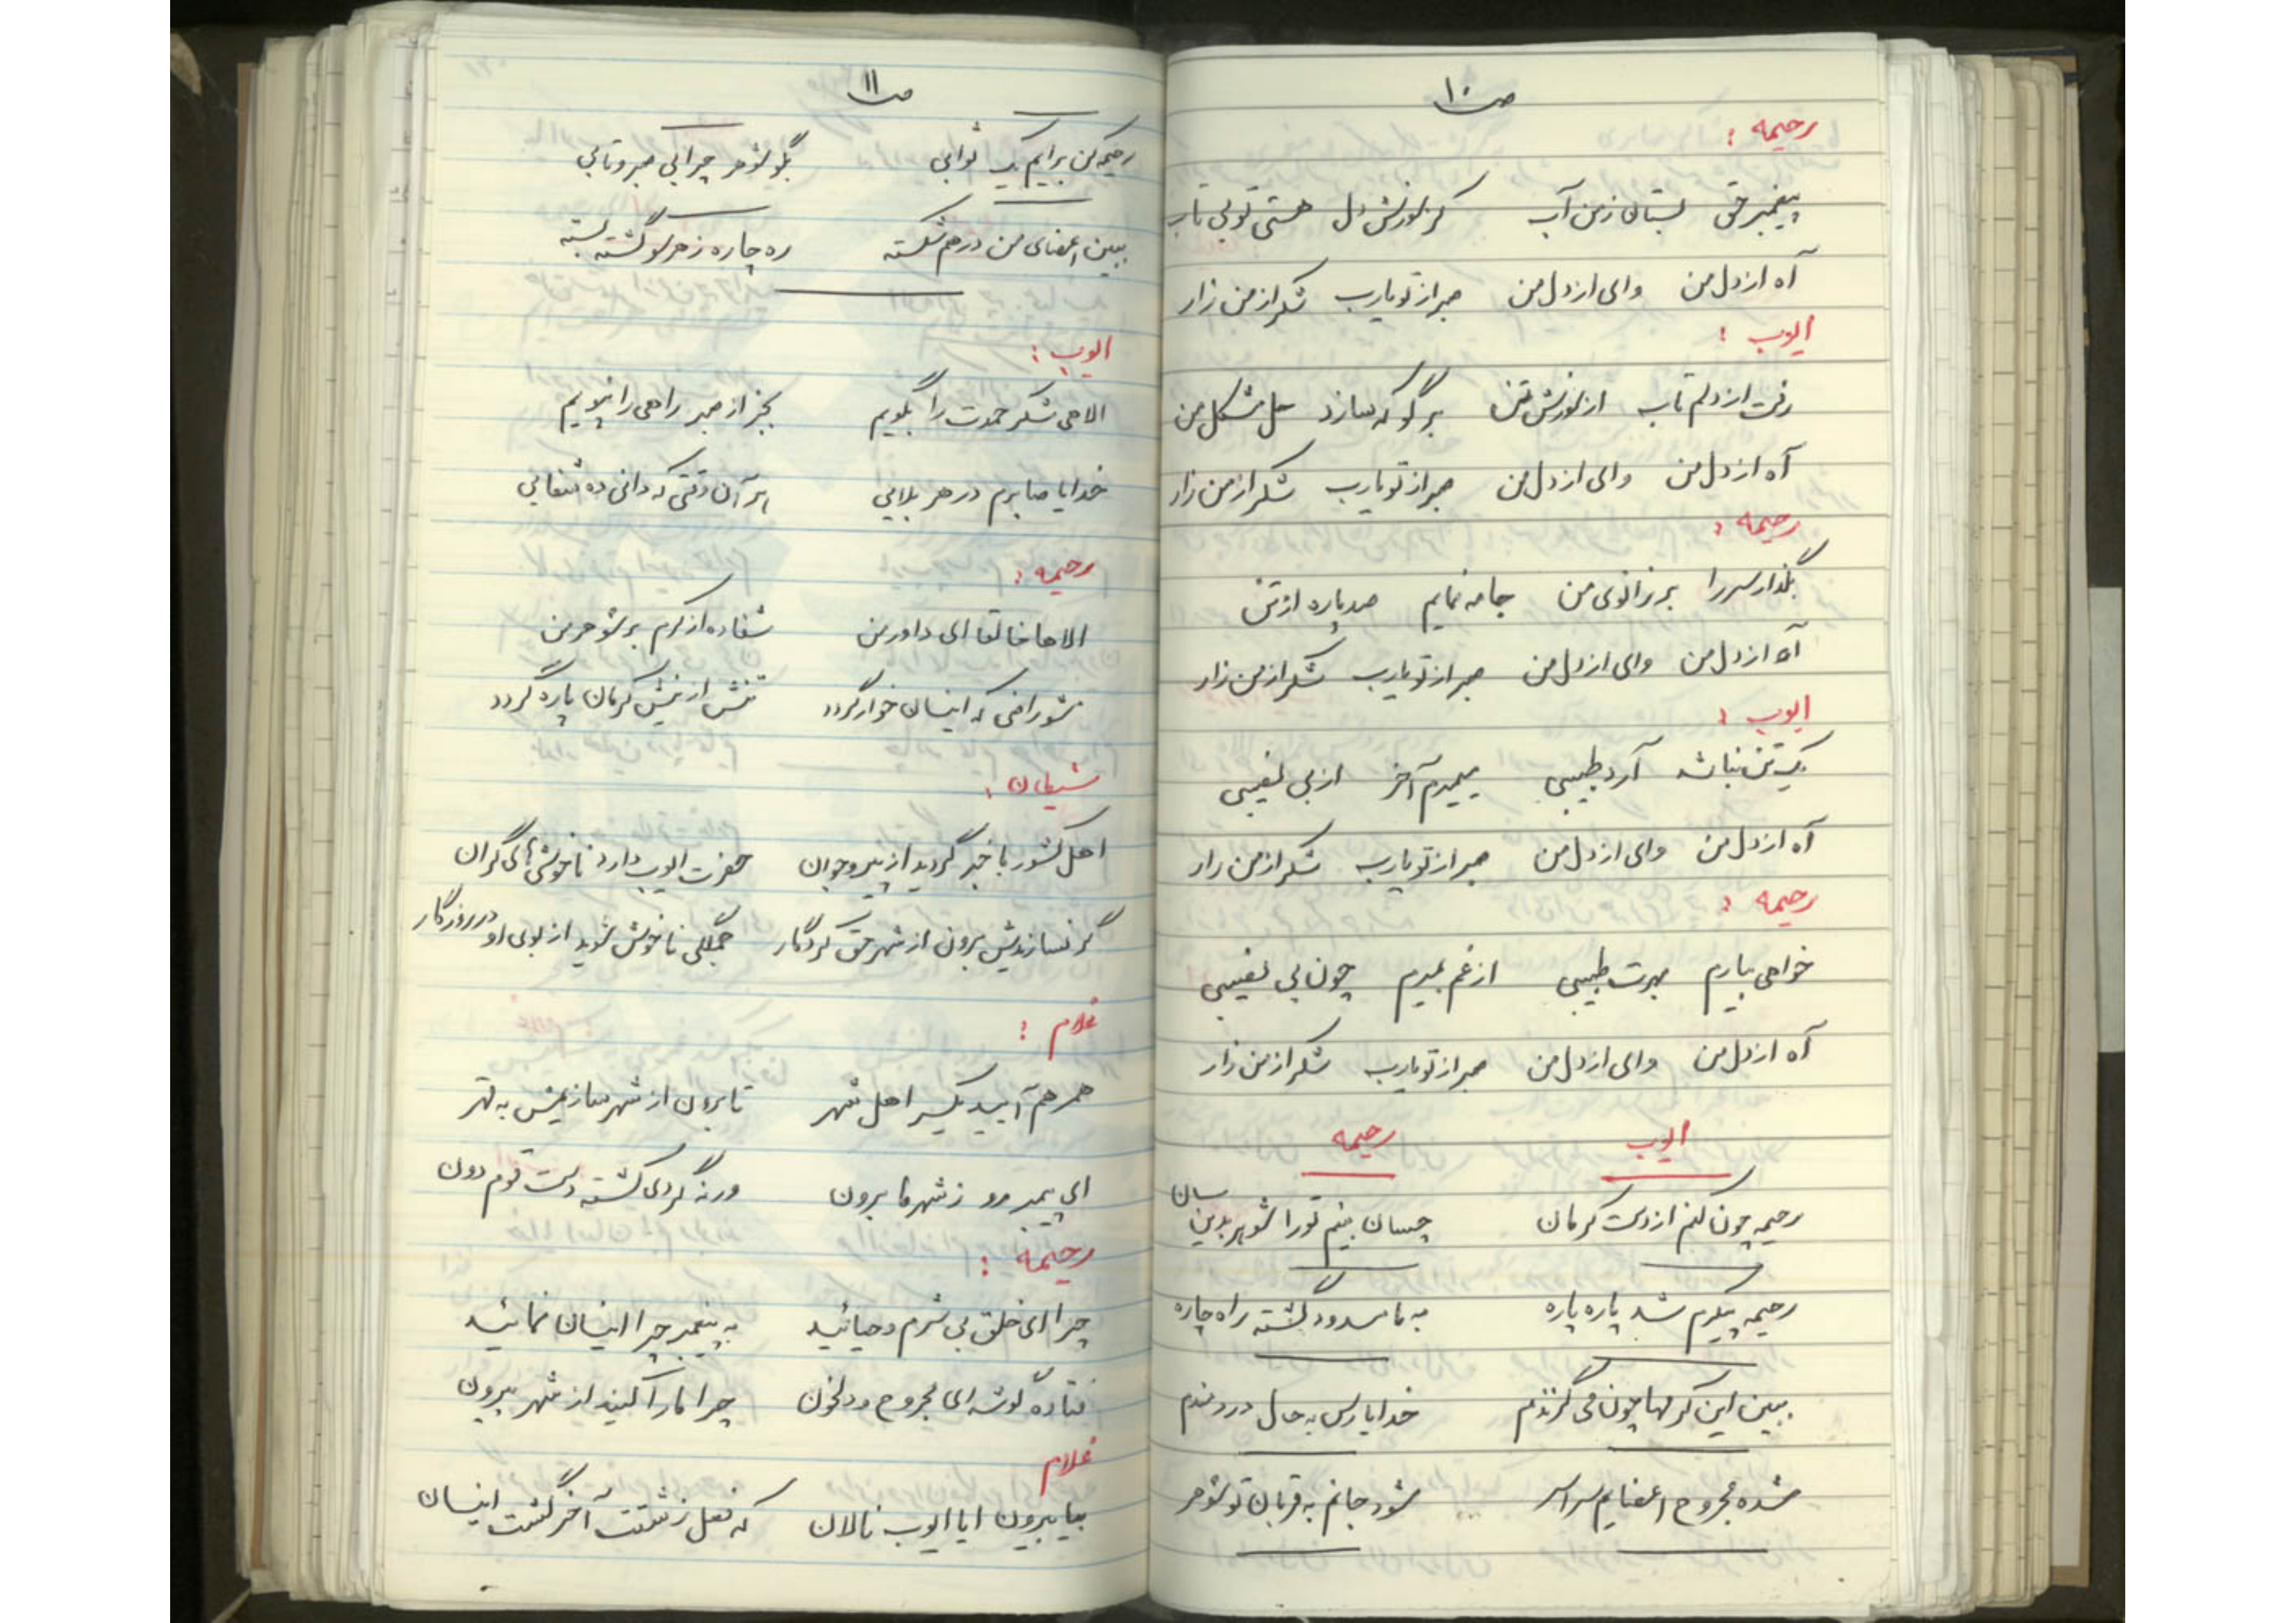 ص ۱۰
رحیمه :
پیغمبر حق بستان زمن آب کز سوزش دل هستی تو بی تاب
آه از دل من وای از دل من صبر از تو یارب شکر از من زار
ایوب :
رفت از دلم تاب از سوزش تن برگو که سازد حل مشکل من
آه از دل من وای از دل من صبر از تو یارب شکر از من زار
رحیمه :
بگذار سر را بر زانوی من جامه نمایم صد پاره از تن
آه از دل من وای از دل من صبر از تو یارب شکر از من زار
ایوب :
یک تن نباشد آرد طبیبی میمیرم آخر از بی نصیبی
آه از دل من وای از دل من صبر از تو یارب شکر از من زار
رحیمه :
خواهی بیارم بهرت طبیبی از غم بمیرم چون بی نصیبی
آه از دل من وای از دل من صبر از تو یارب شکر از من زار
ایوب رحیمه
رحیمه چون کنم از دست کرمان چسان بینم تو را شوهر بدین سان
رحیمه پیکرم شد پاره پاره به ما مسدود گشته راه چاره
ببین این کرمها چون می گزندم خدایا رس به حال دردمندم
شده مجروح اعضایم سراسر شود جانم به قربان تو شوهر
ص ۱۱
رحیمه کن برایم یک ثوابی بگو شوهر چرا بی صبر و تابی
ببین اعضای من درهم شکسته ره چاره ز هر سو گشته بسته
ایوب :
الاهی شکر حمدت را بگویم بجز از صبر راهی را نپویم
خدایا صابرم در هر بلایی بر آن وقتی که دانی ده شفایی
رحیمه :
الاها خالقا ای داور من شفا ده از کرم بر شوهر من
نشو راضی که اینسان خوار گردد تنش از نیش کرمان پاره گردد
شیطان :
اهل کشور با خبر گردید از پیر و جوان حضرت ایوب دارد ناخوشی های گران
گر نسازیدش برون از شهر حق کردگار جملگی ناخوش شوید از بوی او در روزگار
غلام :
همرهم آیید یکسر اهل شهر تا برون از شهر سازیمش به قهر
ای پیمبر رو ز شهر ما برون ورنه گردی کشته دست قوم دون
رحیمه :
چرا ای خلق بی شرم و حیائید به پیغمبر چرا اینسان نمائید
فتاده گوشه ای مجروح و دلخون چرا ما را کنید از شهر بیرون
غلام
بیا بیرون ایا ایوب نالان که فعل زشتت آخر گشت اینسان